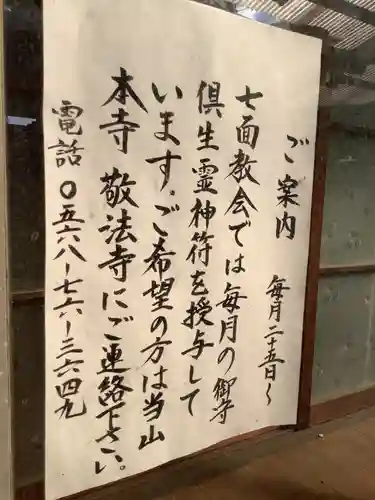 ご案内
毎月二十五日〜
七面教会では毎月の御守
倶生霊神符を授与して
います。ご希望の方は当山
本寺 敬法寺にご連絡下さい。
電話 〇五六八-七六-三六四九